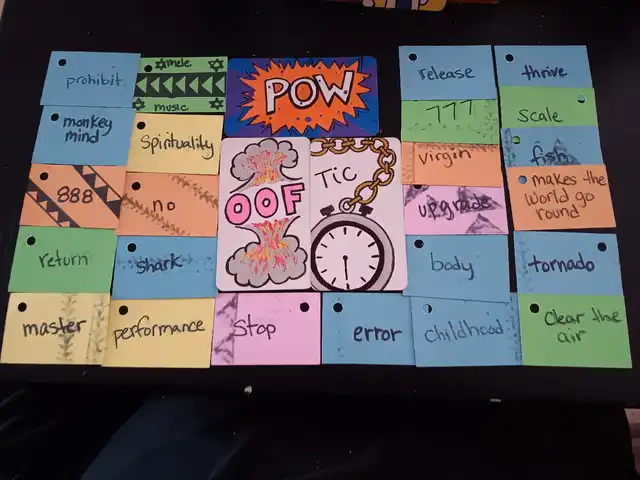 prohibit
mele
music
POW
release
thrive
monkey
mind
Spirituality
777
scale
virgin
fish
888
no
OOF
TIC
upgrade
makes the
world go
round
return
shark
body
tornado
master
performance
Stop
error
childhood
Clear the
air